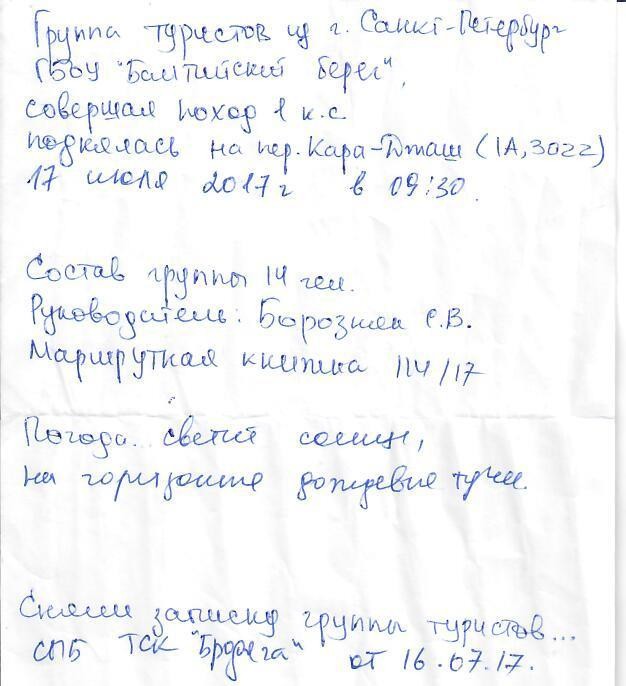 Группа туристов из г. Санкт-Петербург
ГБОУ "Балтийский берег",
совершая поход 1 к.с.
поднялась на пер. Кара-Дташ (1А, 3022)
17 июля 2017 г в 09:30.
Состав группы 14 чел.
Руководитель: С.В.
Маршрутная книжка 114/17
Погода: светит солнце,
на горизонте дождевые тучи.
Сняли записку группы туристов...
СПБ ТСК от 16.07.17.